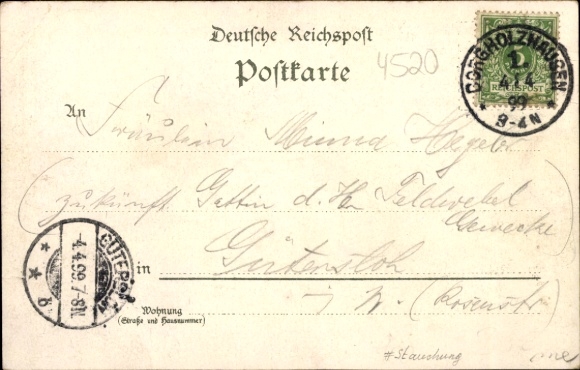 Deutsche Reichspost
Postkarte
4520
5
REICHSPOST
BORGHOLZHAUSEN
4 4
99
3-4N
An
Fräulein Minna Hegeler
(zukünft. Gattin d. H. Feldwebel
Gewecke)
in Gütersloh
i/W. (Rosenstr.
Wohnung
(Straße und Hausnummer)
GÜTERSLOH
4.4.99.7-8N.
#Stauchung